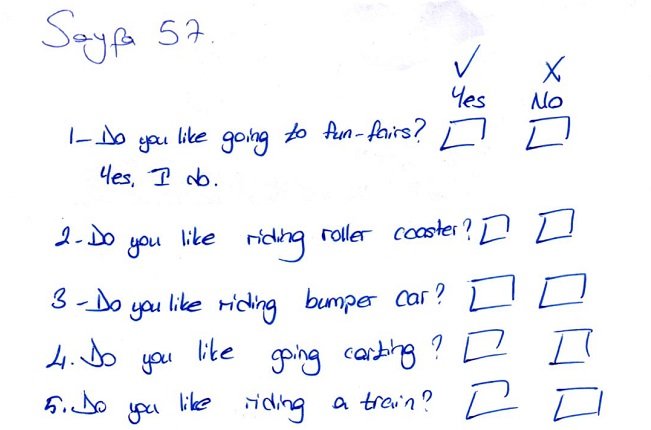 Sayfa 57.
✓ X
Yes No
1- Do you like going to fun-fairs? ☐ ☐
Yes, I do.
2- Do you like riding roller coaster? ☐ ☐
3 - Do you like riding bumper car? ☐ ☐
4. Do you like going carting? ☐ ☐
5. Do you like riding a train? ☐ ☐